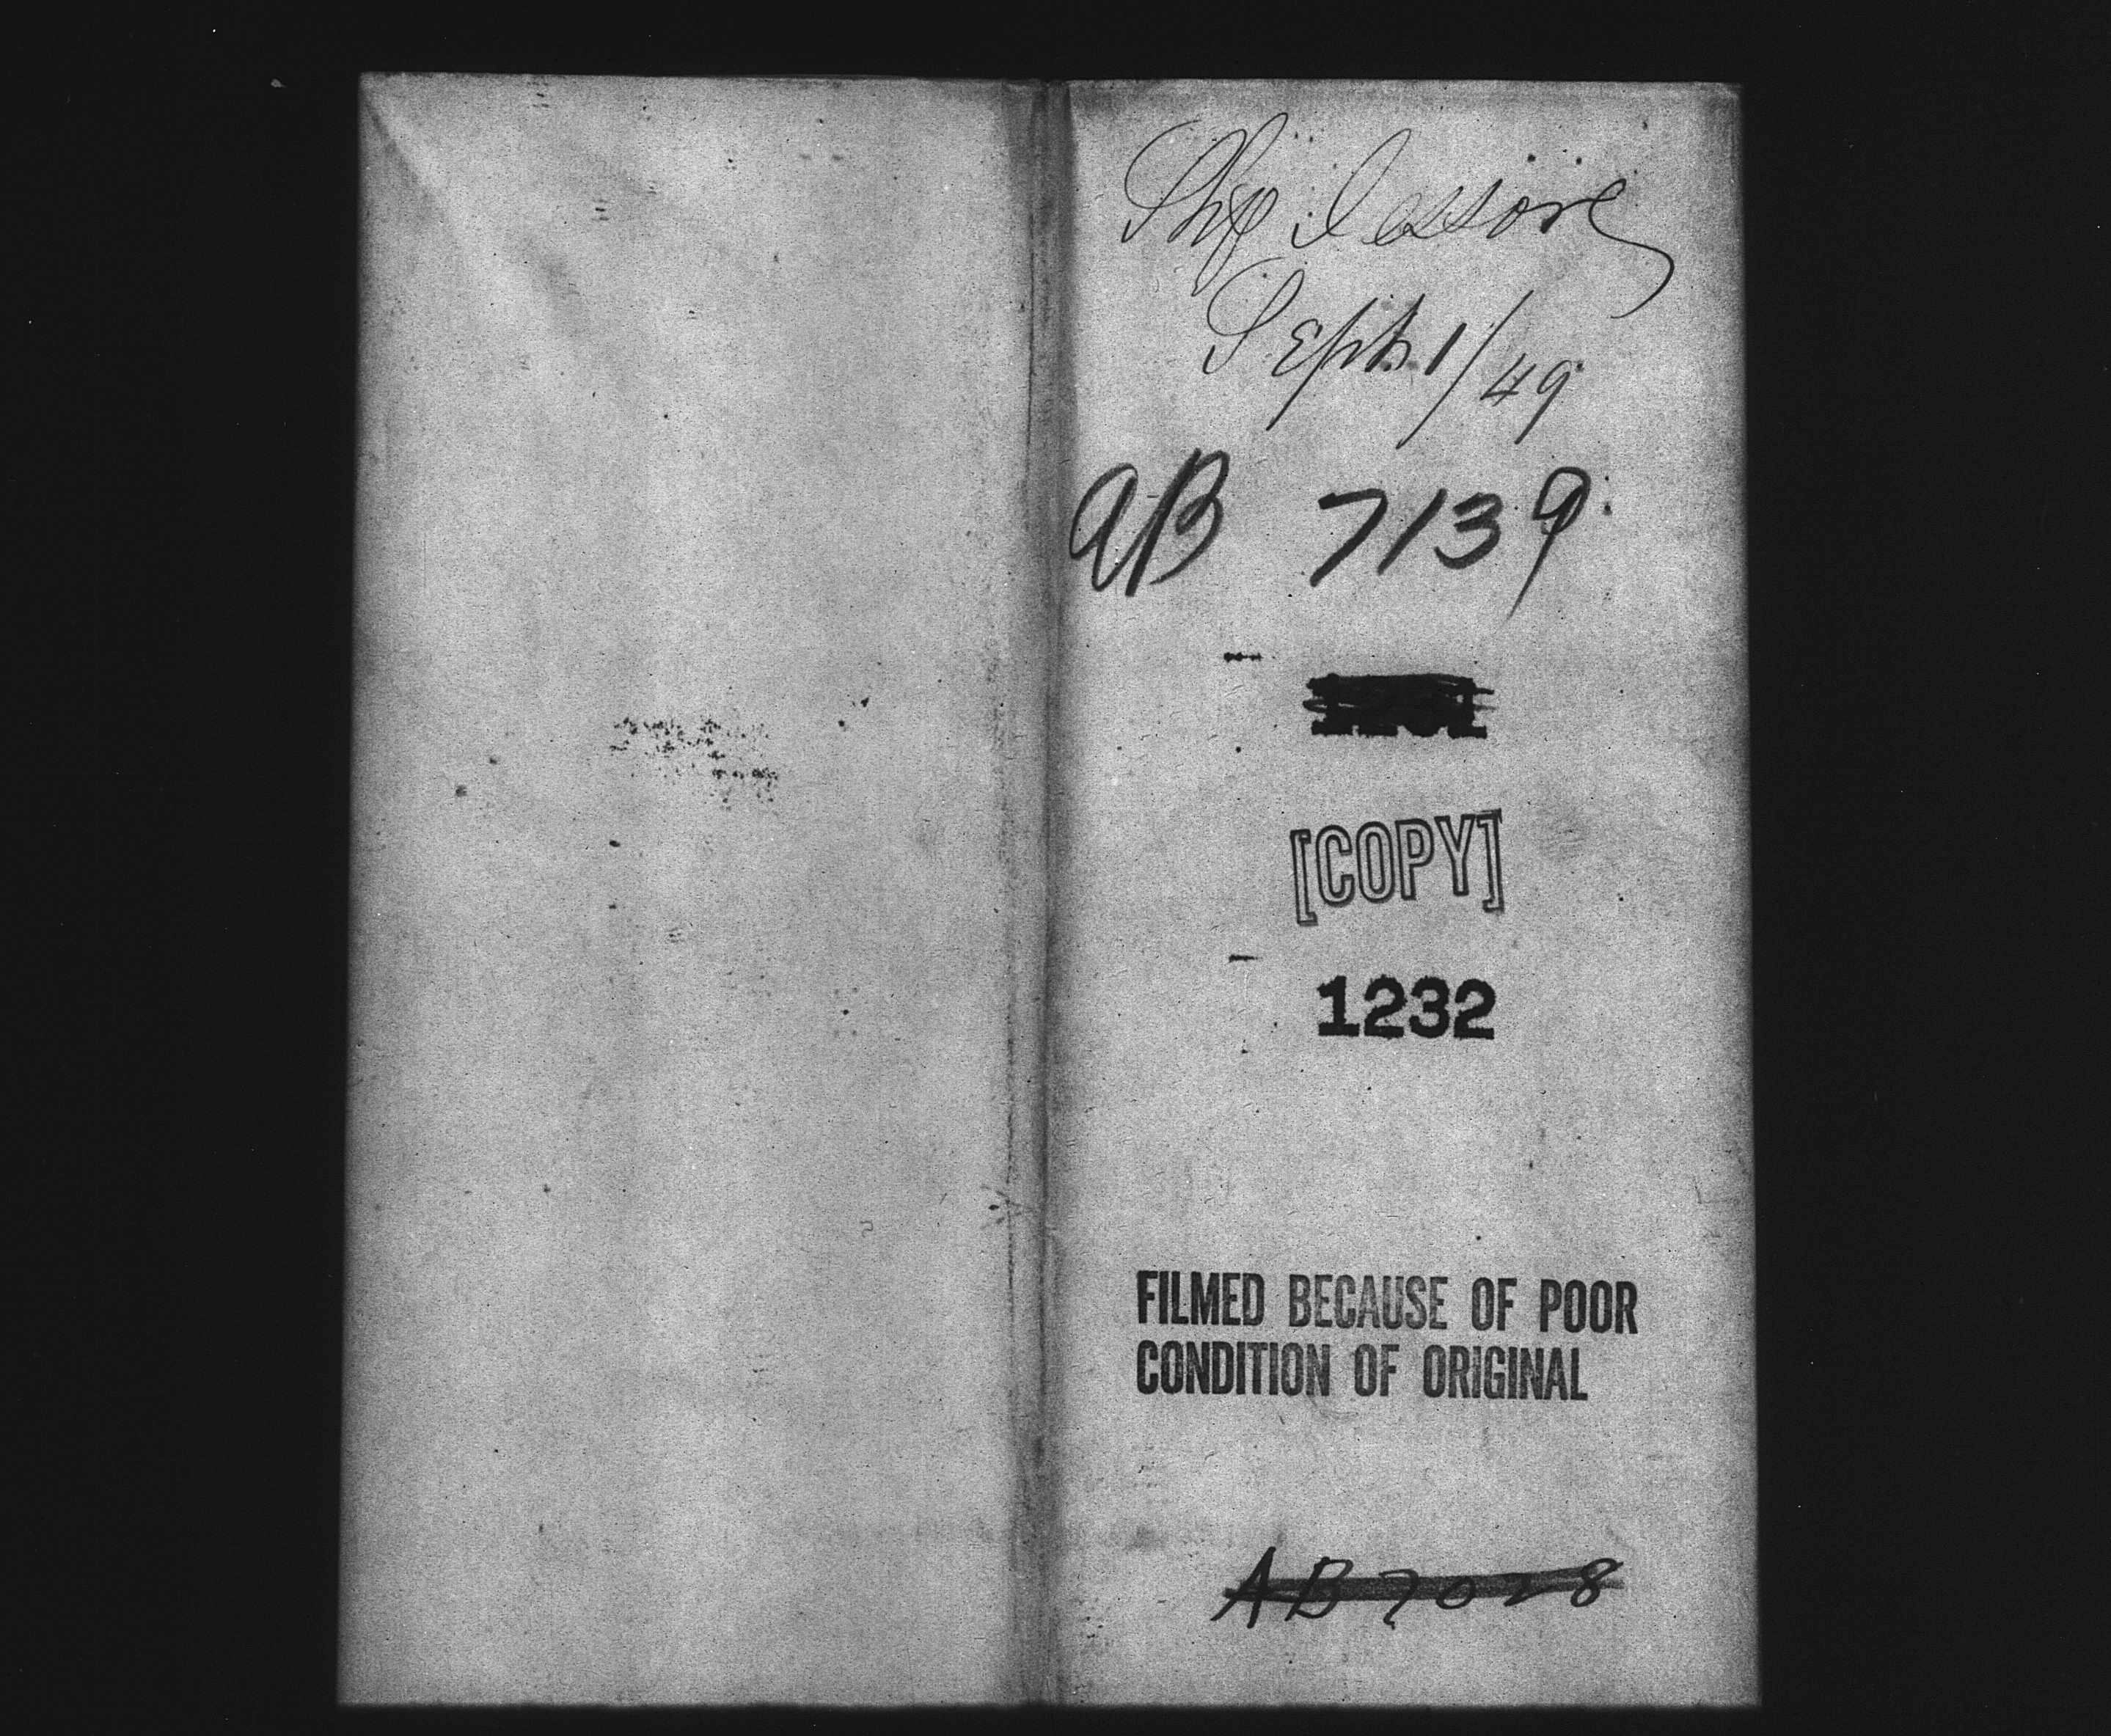 Shp Jessore
Sept. 1/49
AB 7139
[COPY]
1232
FILMED BECAUSE OF POOR
CONDITION OF ORIGINAL
AB 7028